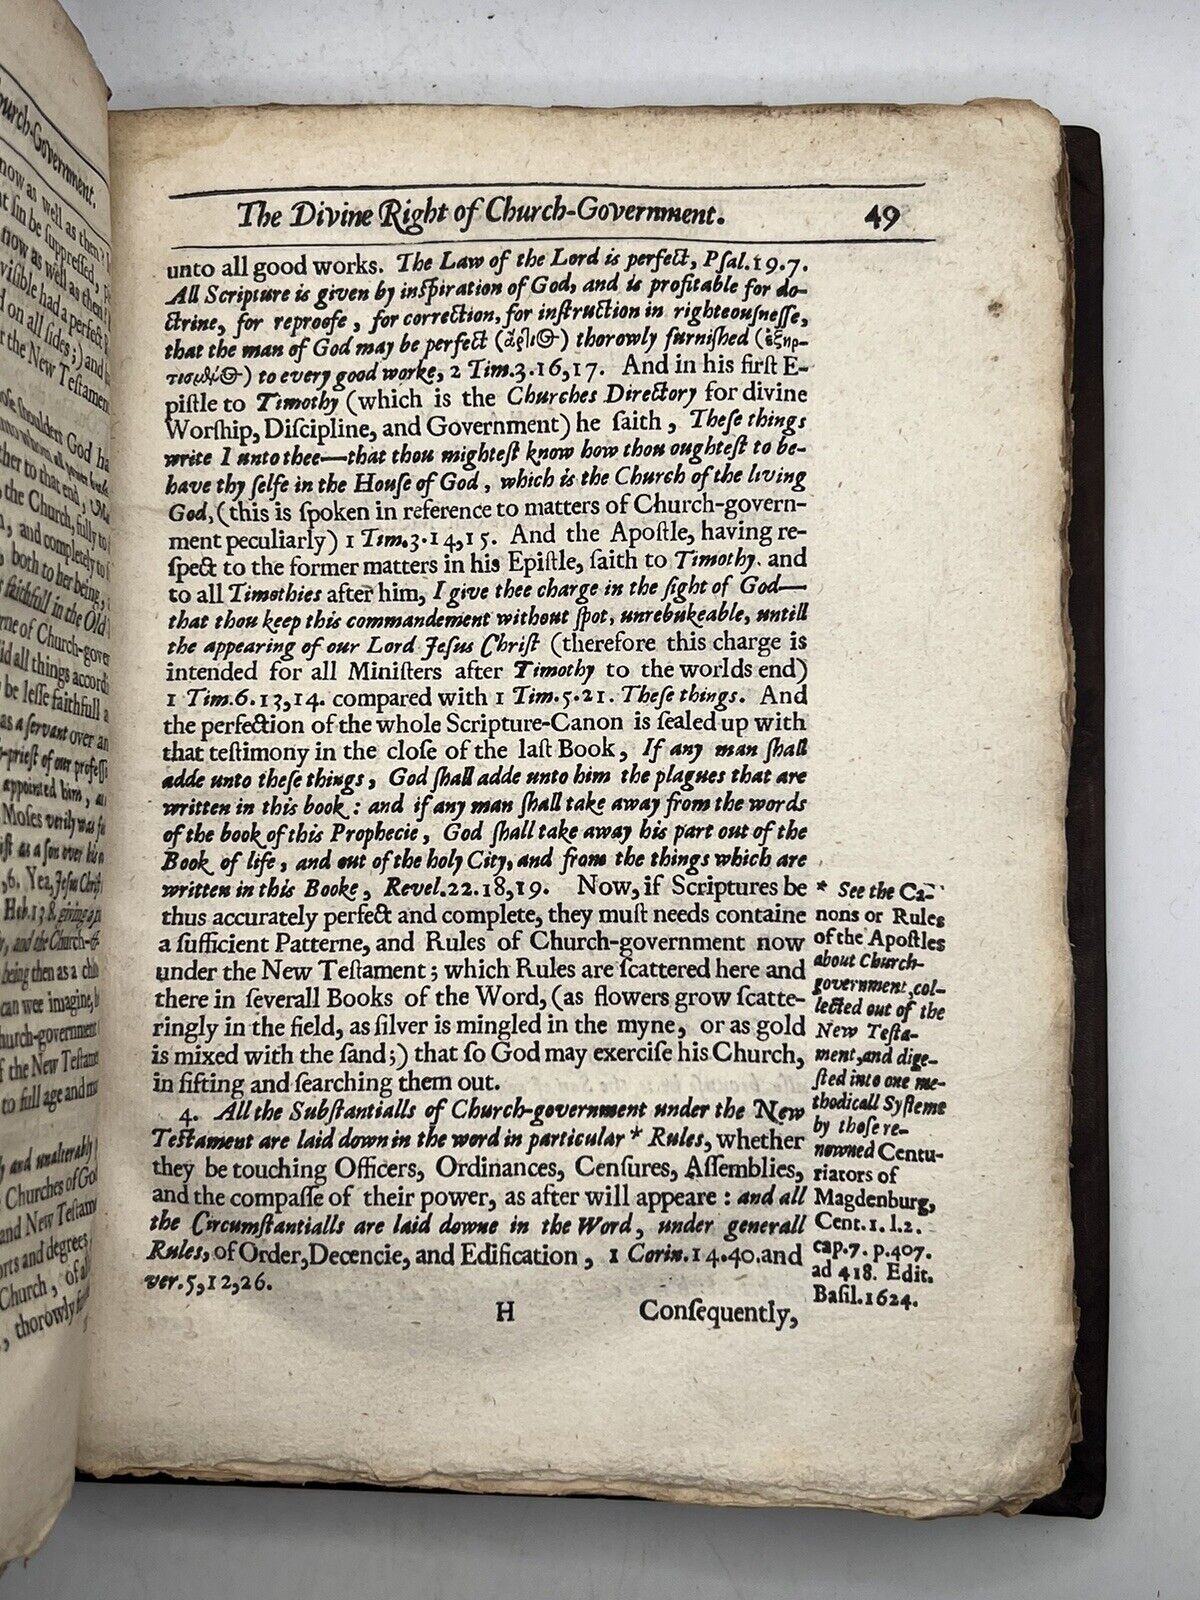 Church-Government.
now as well as then?
sin be suppressed,
now as well as then
visible had a perfect
on all sides;) and
the New Testament
those shoulders God
unto whom all power
to that end,
the Church, fully to
and compleatly to
both to her being,
faithfull in the Old
of Church-gover
did all things accordi
be leſſe faithfull a
as a ſervant over an
-prieſt of our profeſſi
appointed him,
Moſes verily was
as a ſon over his
,6. Yea, Jeſus Chriſt
Heb.13.8. giving
and the Church
being then as a child
can wee imagine,
Church-government
of the New Teſtame
to full age and
and unalterably
Churches of God
and New Teſtam
and degrees
Church, of all
, thorowly
The Divine Right of Church-Government. 49
unto all good works. The Law of the Lord is perfect, Pſal.19.7.
All Scripture is given by inſpiration of God, and is profitable for do-
ctrine, for reproofe, for correction, for inſtruction in righteouſneſſe,
that the man of God may be perfect (ἄρτι©) thorowly furniſhed (ἐξηρ-
τισμέν©) to every good worke, 2 Tim.3.16,17. And in his firſt E-
piſtle to Timothy (which is the Churches Directory for divine
Worſhip, Diſcipline, and Government) he ſaith, Theſe things
write I unto thee—that thou mighteſt know how thou oughteſt to be-
have thy ſelfe in the Houſe of God, which is the Church of the living
God, (this is ſpoken in reference to matters of Church-govern-
ment peculiarly) 1 Tim.3.14,15. And the Apoſtle, having re-
ſpect to the former matters in his Epiſtle, ſaith to Timothy. and
to all Timothies after him, I give thee charge in the ſight of God—
that thou keep this commandement without ſpot, unrebukeable, untill
the appearing of our Lord Jeſus Chriſt (therefore this charge is
intended for all Miniſters after Timothy to the worlds end)
1 Tim.6.13,14. compared with 1 Tim.5.21. Theſe things. And
the perfection of the whole Scripture-Canon is ſealed up with
that teſtimony in the cloſe of the laſt Book, If any man ſhall
adde unto theſe things, God ſhall adde unto him the plagues that are
written in this book : and if any man ſhall take away from the words
of the book of this Prophecie, God ſhall take away his part out of the
Book of life, and out of the holy City, and from the things which are
written in this Booke, Revel.22.18,19. Now, if Scriptures be
thus accurately perfect and complete, they muſt needs containe
a ſufficient Patterne, and Rules of Church-government now
under the New Teſtament; which Rules are ſcattered here and
there in ſeverall Books of the Word, (as flowers grow ſcatte-
ringly in the field, as ſilver is mingled in the myne, or as gold
is mixed with the ſand;) that ſo God may exerciſe his Church,
in ſifting and ſearching them out.
4. All the Subſtantialls of Church-government under the New
Teſtament are laid down in the word in particular * Rules, whether
they be touching Officers, Ordinances, Cenſures, Aſſemblies,
and the compaſſe of their power, as after will appeare : and all
the Circumſtantialls are laid downe in the Word, under generall
Rules, of Order, Decencie, and Edification, 1 Corin.14.40. and
ver.5,12,26.
* See the Ca-
nons or Rules
of the Apoſtles
about Church-
government, col-
lected out of the
New Teſta-
ment, and dige-
ſted into one me-
thodicall Syſteme
by thoſe re-
nowned Centu-
riators of
Magdenburg,
Cent.1. l.2.
cap.7. p.407.
ad 418. Edit.
Baſil.1624.
H Conſequently,